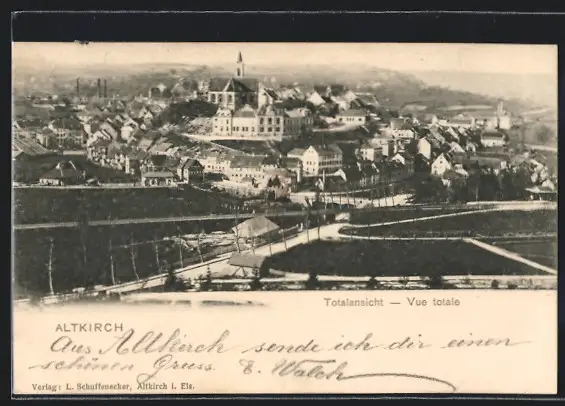 Totalansicht — Vue totale
ALTKIRCH
Aus Altkirch sende ich dir einen
schönen Gruss. E. Walch
Verlag: L. Schuffenecker, Altkirch i. Els.